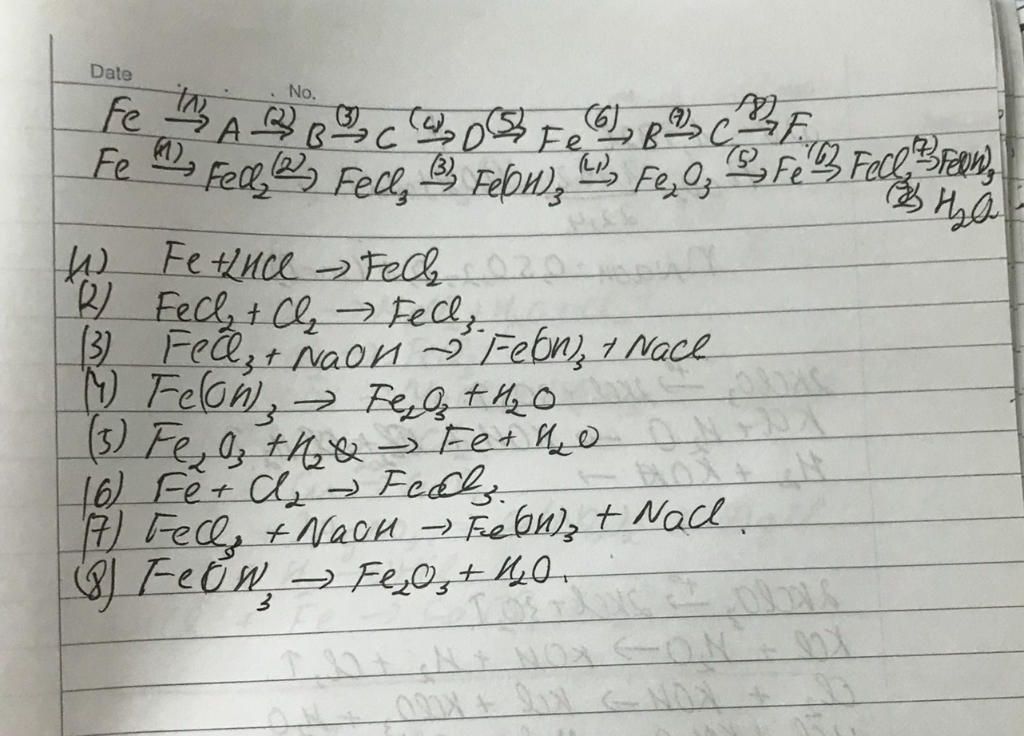 Date
No.
Fe (1)→ A (2)→ B (3)→ C (4)→ D (5)→ Fe (6)→ B (7)→ C (8)→ F.
Fe (1)→ FeCl₂ (2)→ FeCl₃ (3)→ Fe(OH)₃ (4)→ Fe₂O₃ (5)→ Fe (6)→ FeCl₃ (7)→ Fe(OH)₃
(8)→ H₂O
(1) Fe + 2HCl → FeCl₂
(2) FeCl₂ + Cl₂ → FeCl₃.
(3) FeCl₃ + NaOH → Fe(OH)₃ + NaCl
(4) Fe(OH)₃ → Fe₂O₃ + H₂O
(5) Fe₂O₃ + H₂ → Fe + H₂O
(6) Fe + Cl₂ → FeCl₃.
(7) FeCl₃ + NaOH → Fe(OH)₃ + NaCl.
(8) FeOH₃ → Fe₂O₃ + H₂O.